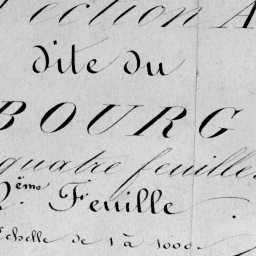 Section A
dite du
BOURG
quatre feuilles
2.ème Feuille
Echelle de 1 à 1000